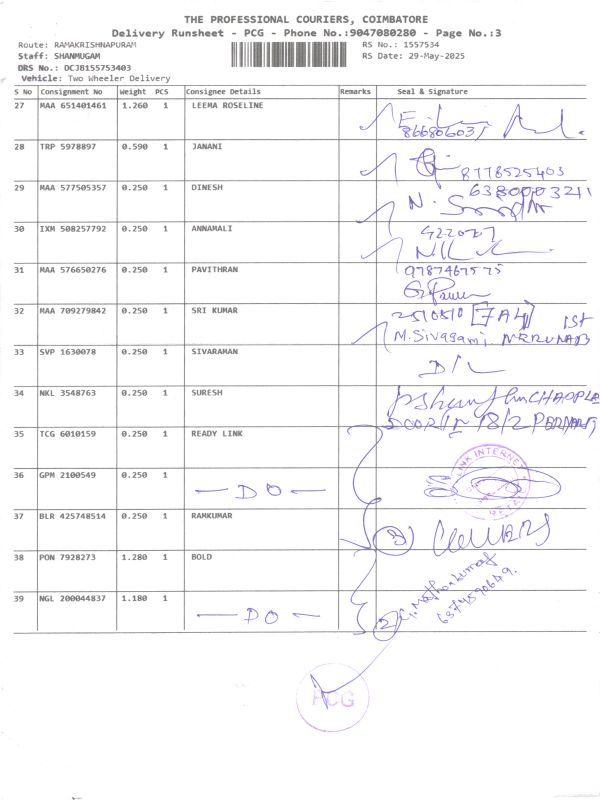 THE PROFESSIONAL COURIERS, COIMBATORE
Delivery Runsheet - PCG - Phone No.:9047080280 - Page No.:3
Route: RAMAKRISHNAPURAM RS No.: 1557534
Staff: SHANMUGAM RS Date: 29-May-2025
DRS No.: DCJB155753403
Vehicle: Two Wheeler Delivery
S No Consignment No Weight PCS Consignee Details Remarks Seal & Signature
27 MAA 651401461 1.260 1 LEEMA ROSELINE
28 TRP 5978897 0.590 1 JANANI
8778525403
29 MAA 577505357 0.250 1 DINESH 6380003211
N.
30 IXM 508257792 0.250 1 ANNAMALI
31 MAA 576650276 0.250 1 PAVITHRAN 9787467575
32 MAA 709279842 0.250 1 SRI KUMAR [7A4] 1st
M. Sivagami
33 SVP 1630078 0.250 1 SIVARAMAN D/L
34 NKL 3548763 0.250 1 SURESH
18/2
35 TCG 6010159 0.250 1 READY LINK
LINK INTERNET
36 GPM 2100549 0.250 1 — DO —
37 BLR 425748514 0.250 1 RAMKUMAR
3)
38 PON 7928273 1.280 1 BOLD
39 NGL 200044837 1.180 1 — DO — 2) G. Mathankumar
6374590649.
PCG